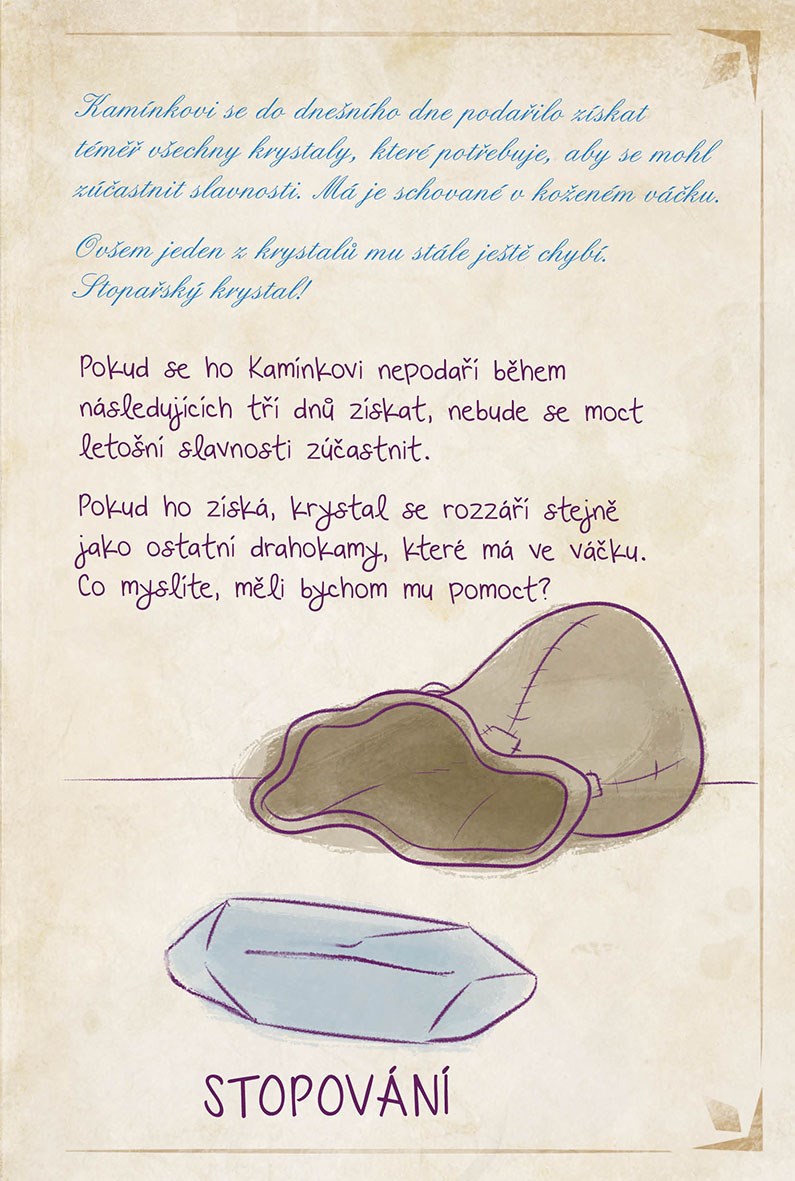 Kamínkovi se do dnešního dne podařilo získat
téměř všechny krystaly, které potřebuje, aby se mohl
zúčastnit slavnosti. Má je schované v koženém váčku.
Ovšem jeden z krystalů mu stále ještě chybí.
Stopařský krystal!
Pokud se ho Kamínkovi nepodaří během
následujících tří dnů získat, nebude se moct
letošní slavnosti zúčastnit.
Pokud ho získá, krystal se rozzáří stejně
jako ostatní drahokamy, které má ve váčku.
Co myslíte, měli bychom mu pomoct?
STOPOVÁNÍ